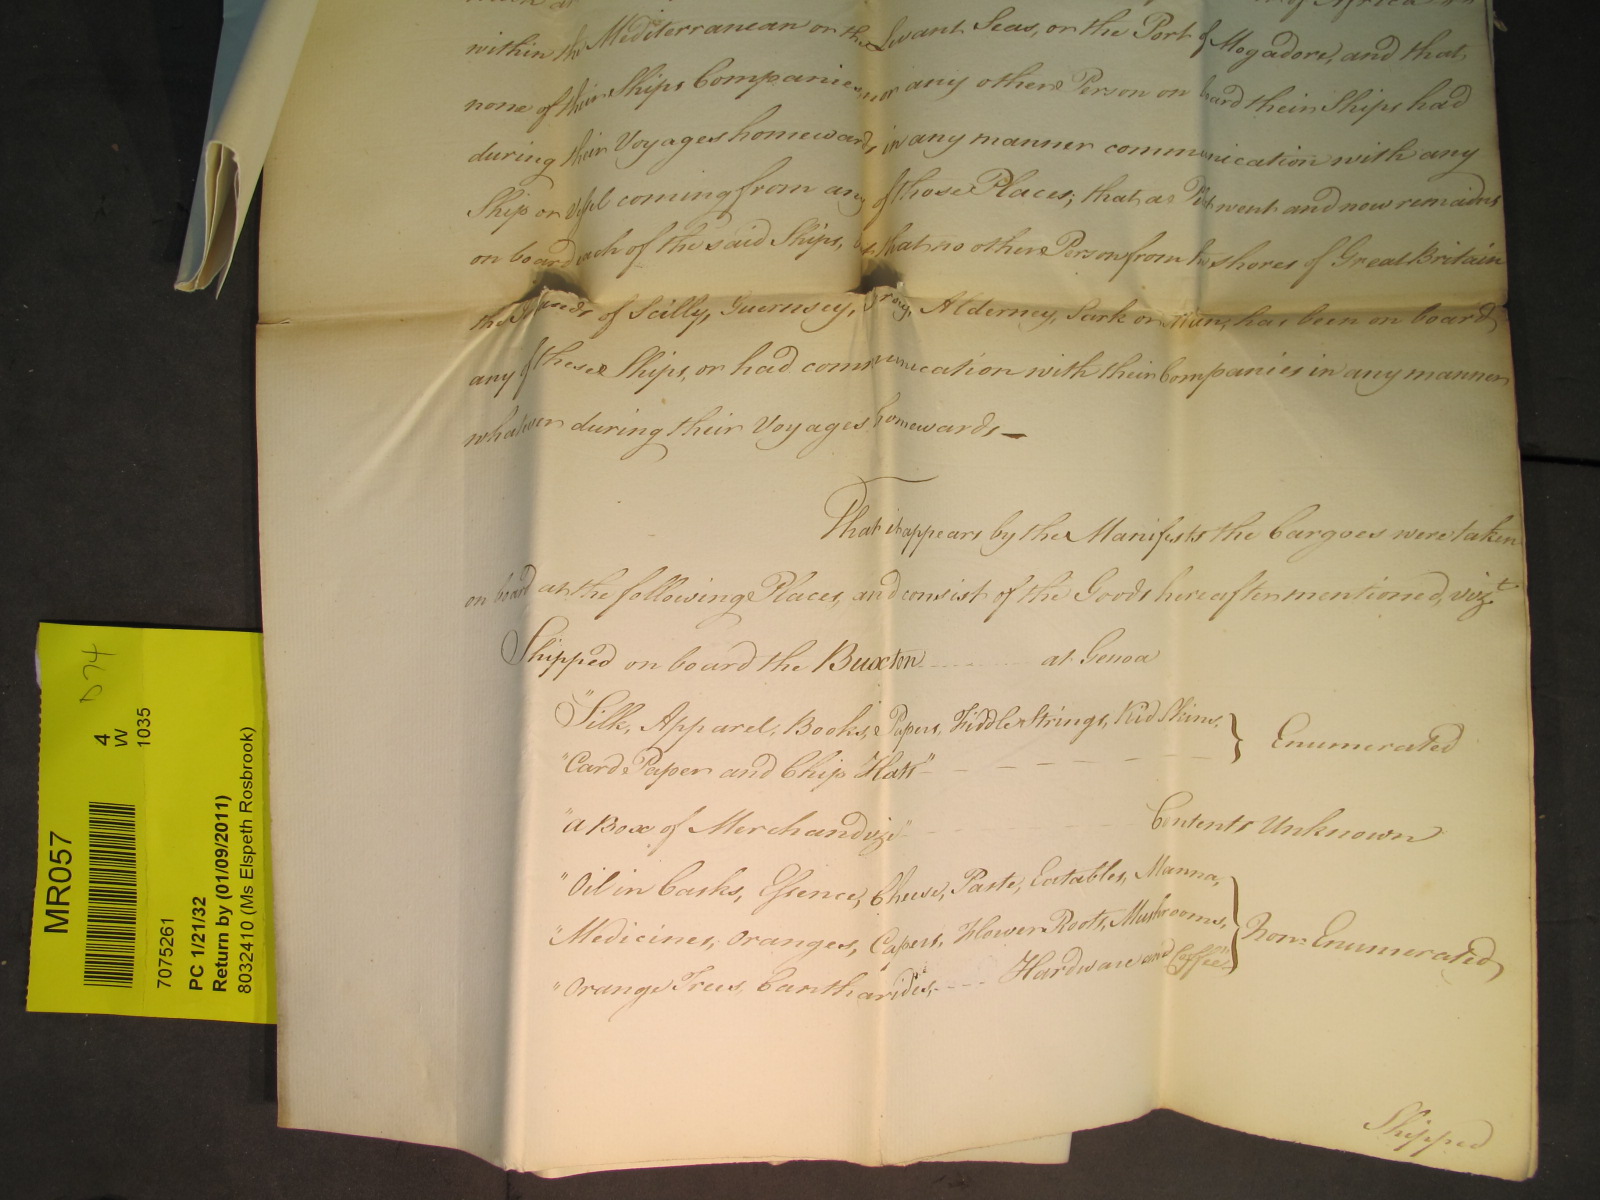 within the Mediterranean or the Levant Seas, or the Port of Mogadore, and that
none of their Ships Companies, nor any other Person on board their Ships had
during their Voyages homewards, in any manner communication with any
Ship or Vessel coming from any of those Places; that a Pilot went and now remains
on board each of the said Ships, but that no other Person from the shores of Great Britain
the Islands of Scilly, Guernsey, Jersey, Alderney, Sark or Man, has been on board
any of these Ships, or had communication with their Companies in any manner
whatever during their Voyages homewards —
That it appears by the Manifests the Cargoes were taken
on board at the following Places, and consist of the Goods hereafter mentioned, vizt
Shipped on board the Buxton at Genoa
"Silk, Apparel, Books, Papers, Fiddle Strings, Kid Skins,
"Card Paper and Chip Hats" } Enumerated
"A Box of Merchandize" Contents Unknown
"Oil in Casks, Essence, Cheese, Paste, Eatables, Manna,
"Medicines, Oranges, Capers, Flower Roots, Mushrooms, } Non-Enumerated
"Orange Trees, Cantharides, Hardware and Coffee"
Shipped
D74
MR057
4
W
1035
7075261
PC 1/21/32
Return by (01/09/2011)
8032410 (Ms Elspeth Rosbrook)